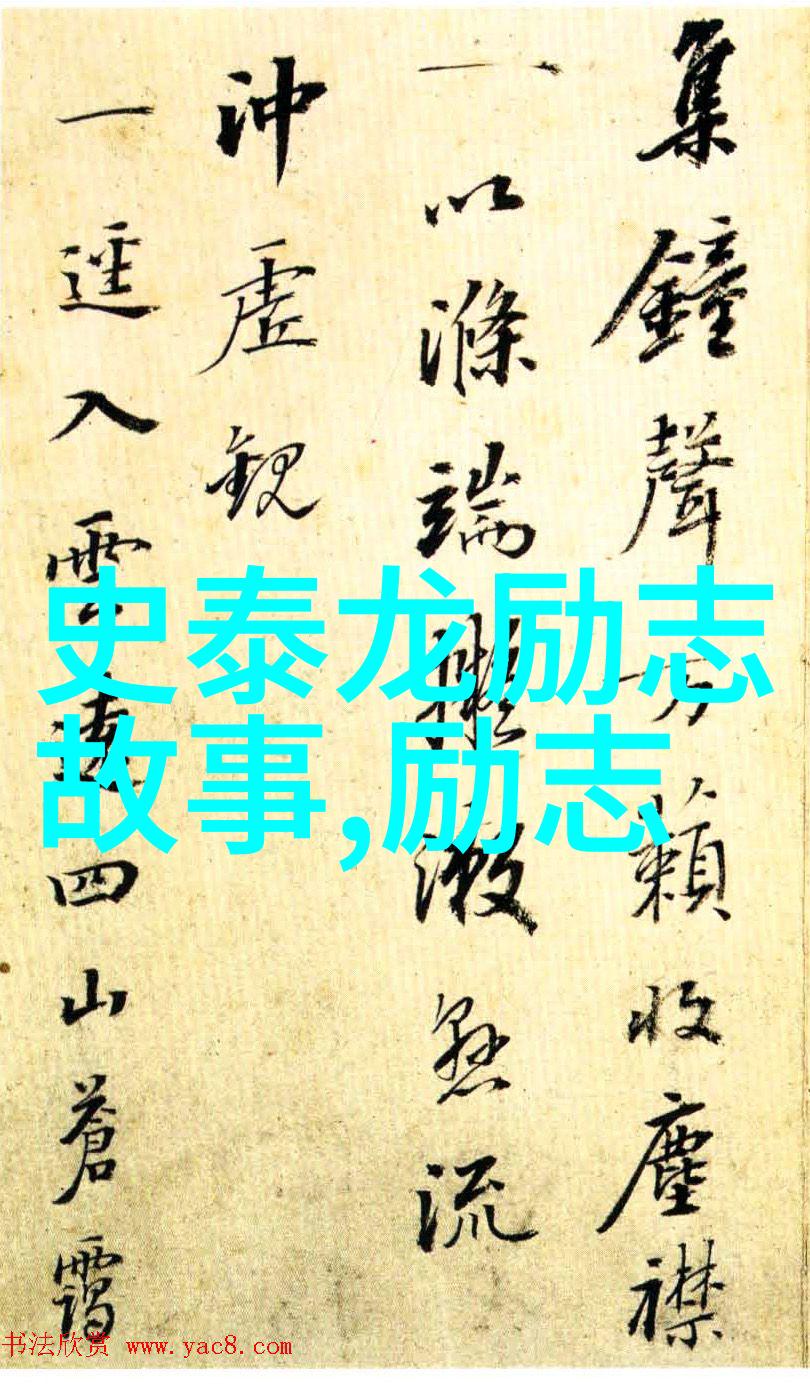 集鐘聲万籟收塵襟
一以滌端擬漱懸流
沖虛觀
一逕入雲遠四山蒼靄
史泰龙励志
故事,励志
书法欣赏 www.yac8.com